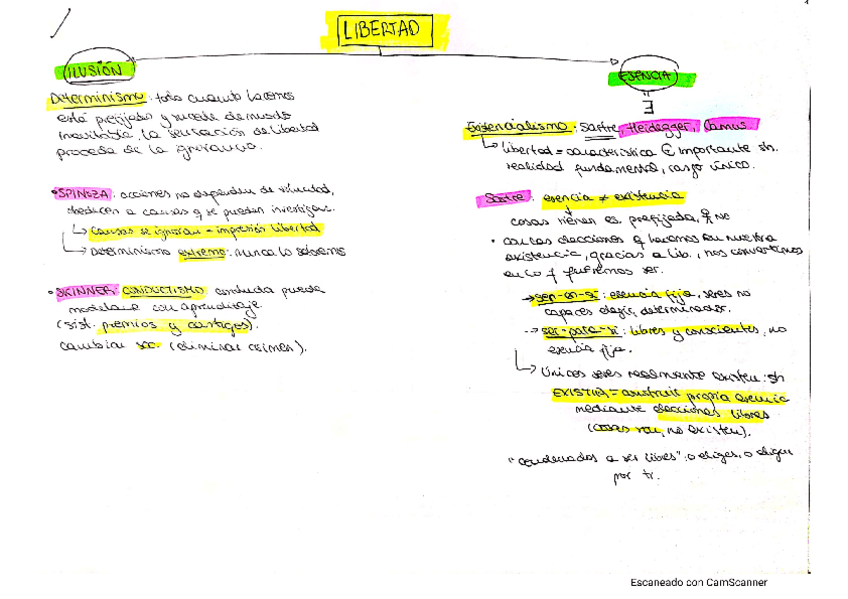 LIBERTAD
ILUSIÓN
Determinismo: todo cuanto hacemos
está prefijado y sucede de modo
inevitable, la sensación de libertad
procede de la ignorancia.
• SPINOZA: acciones no dependen de voluntad,
obedecen a causas q se pueden investigar.
↳ Causas se ignoran = impresión libertad
↳ Determinismo extremo: nunca lo sabremos
• SKINNER: CONDUCTISMO conducta puede
modelarse con aprendizaje
(sist. premios y castigos).
cambiar soc. (eliminar crimen).
ESENCIA
"
∃
Existencialismo: Sartre, Heidegger, Camus.
↳ libertad = característica + importante sh.
realidad fundamental, rasgo único.
Sartre: esencia ≠ existencia
cosas tienen es. prefijada, no
• con las elecciones q hacemos en nuestra
existencia, gracias a lib., nos convertimos
en lo q queremos ser.
→ ser-en-sí: esencia fija, seres no
capaces elegir, determinados.
→ ser-para-sí: libres y conscientes, no
esencia fija.
↳ Únicos seres realmente existen: sh
EXISTIR = construir propia esencia
mediante elecciones libres
(cosas son, no existen).
"condenados a ser libres": o eliges, o eligen
por ti.
Escaneado con CamScanner